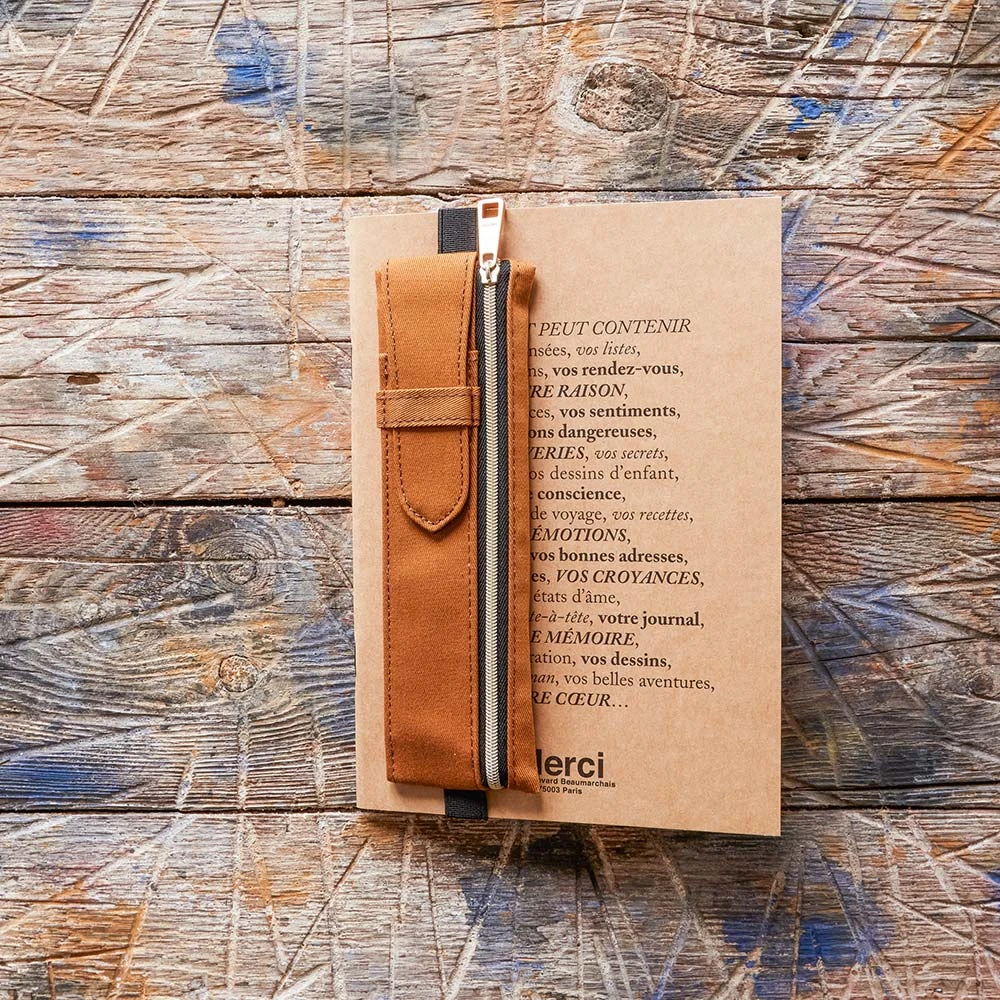 PEUT CONTENIR
vos listes,
vos rendez-vous,
RAISON,
vos sentiments,
dangereuses,
vos secrets,
dessins d'enfant,
conscience,
de voyage, vos recettes,
ÉMOTIONS,
vos bonnes adresses,
VOS CROYANCES,
états d'âme,
votre journal,
MÉMOIRE,
vos dessins,
vos belles aventures,
CŒUR…
Beaumarchais
75003 Paris